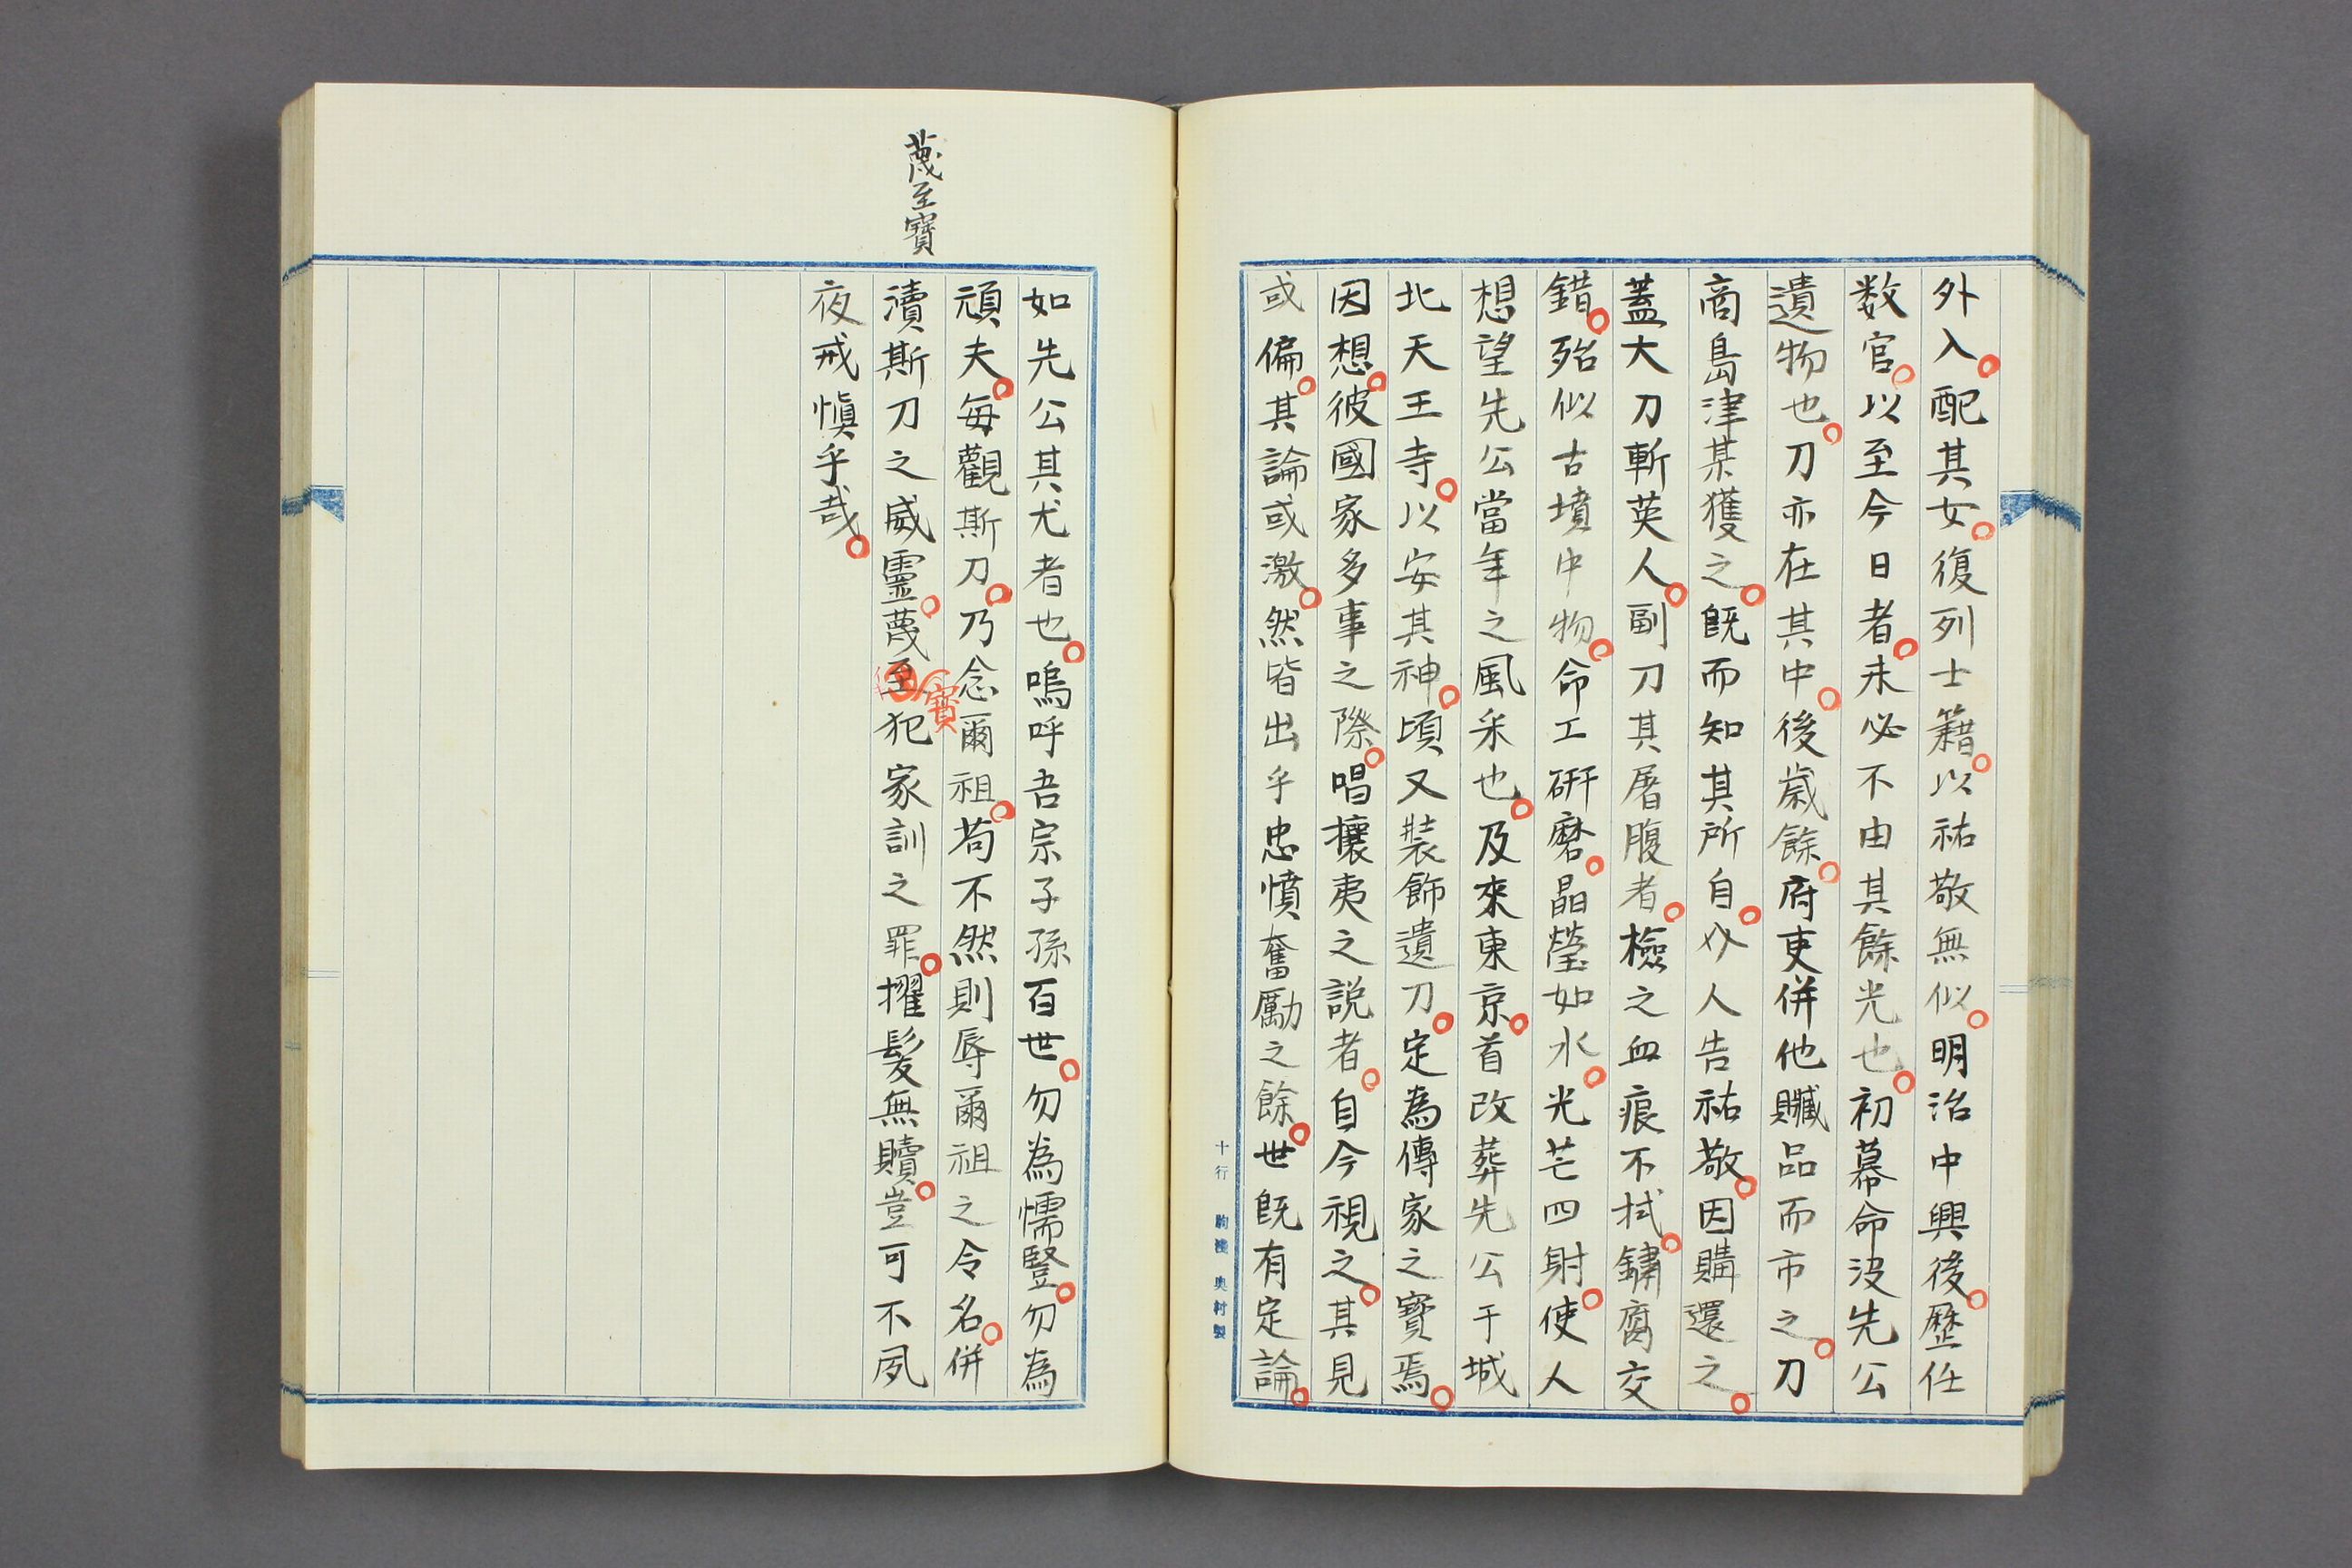 外入。配其女。復列士籍。以祐敬無似。明治中興後。歴任
数官。以至今日者。未必不由其餘光也。初幕命没先公
遺物也。刀亦在其中。後歳餘。府吏併他贓品而市之。刀
商島津某獲之。既而知其所自。介人告祐敬。因購還之。
蓋大刀斬英人。副刀其屠腹者。檢之血痕不拭。鏽腐交
錯。殆似古墳中物。命工研磨。晶瑩如水。光芒四射。使人
想望先公當年之風采也。及來東京。首改葬先公于城
北天王寺。以安其神。頃又裝飾遺刀。定為傳家之寳焉。
因想。彼國家多事之際。唱攘夷之説者。自今視之。其見
或偏。其論或激。然皆出乎忠憤奮勵之餘。世既有定論。
十行 奥村製
蔑至寶
如先公其尤者也。嗚呼吾宗子孫百世。勿為懦豎。勿為
頑夫。毎觀斯刀。乃念爾祖。苟不然則辱爾祖之令名。併
瀆斯刀之威靈。蔑至寶犯家訓之罪。擢髪無贖。豈可不夙
夜戒愼乎哉。